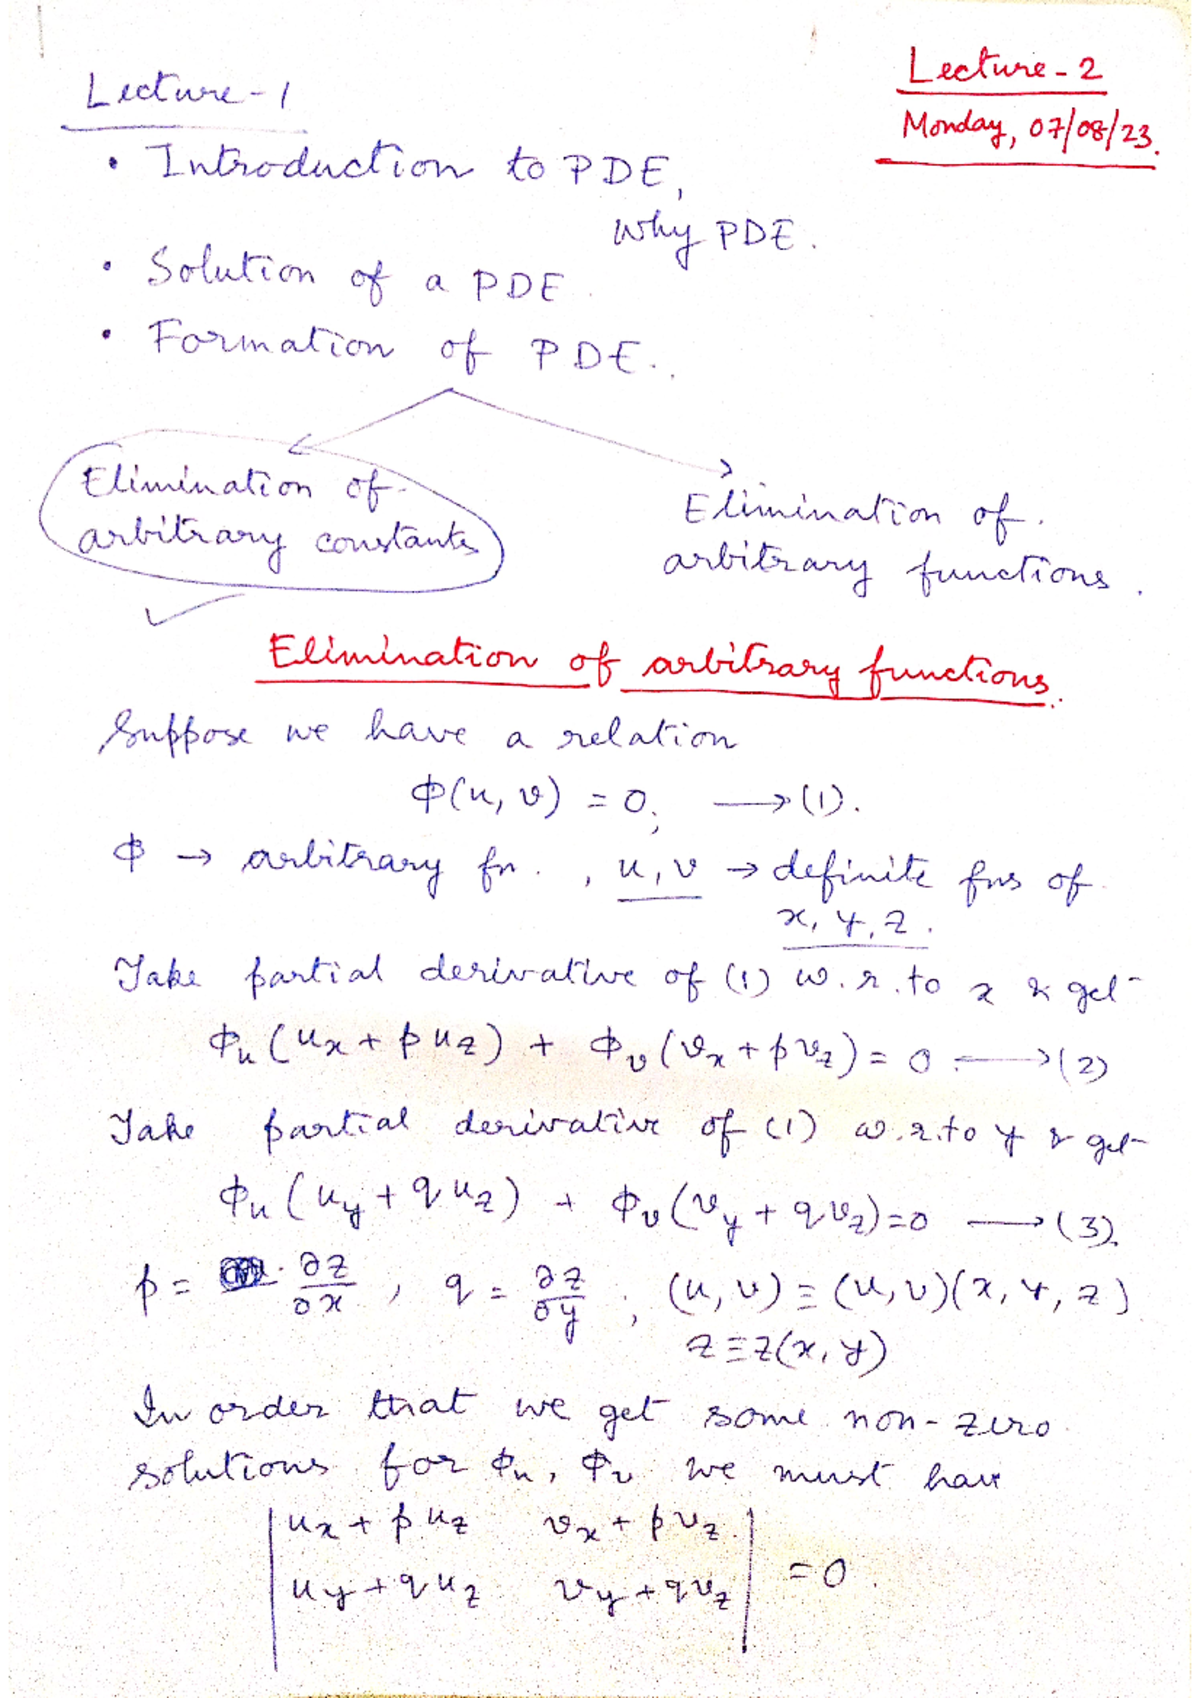 Lecture-1
Lecture-2
Monday, 07/08/23.
• Introduction to PDE,
Why PDE.
• Solution of a PDE.
• Formation of PDE.
Elimination of arbitrary constants
Elimination of arbitrary functions.
Elimination of arbitrary functions.
Suppose we have a relation
Φ(u, v) = 0; ⟶ (1).
Φ → arbitrary fn. , u, v → definite fns of
x, y, z.
Take partial derivative of (1) w.r.to x & get
Φ_u (u_x + p u_z) + Φ_v (v_x + p v_z) = 0 ⟶ (2)
Take partial derivative of (1) w.r.to y & get
Φ_u (u_y + q u_z) + Φ_v (v_y + q v_z) = 0 ⟶ (3).
p = ∂z/∂x , q = ∂z/∂y ; (u, v) ≡ (u, v)(x, y, z)
z ≡ z(x, y)
In order that we get some non-zero
solutions for Φ_u, Φ_v we must have
| u_x + p u_z  v_x + p v_z |
| u_y + q u_z  v_y + q v_z | = 0.